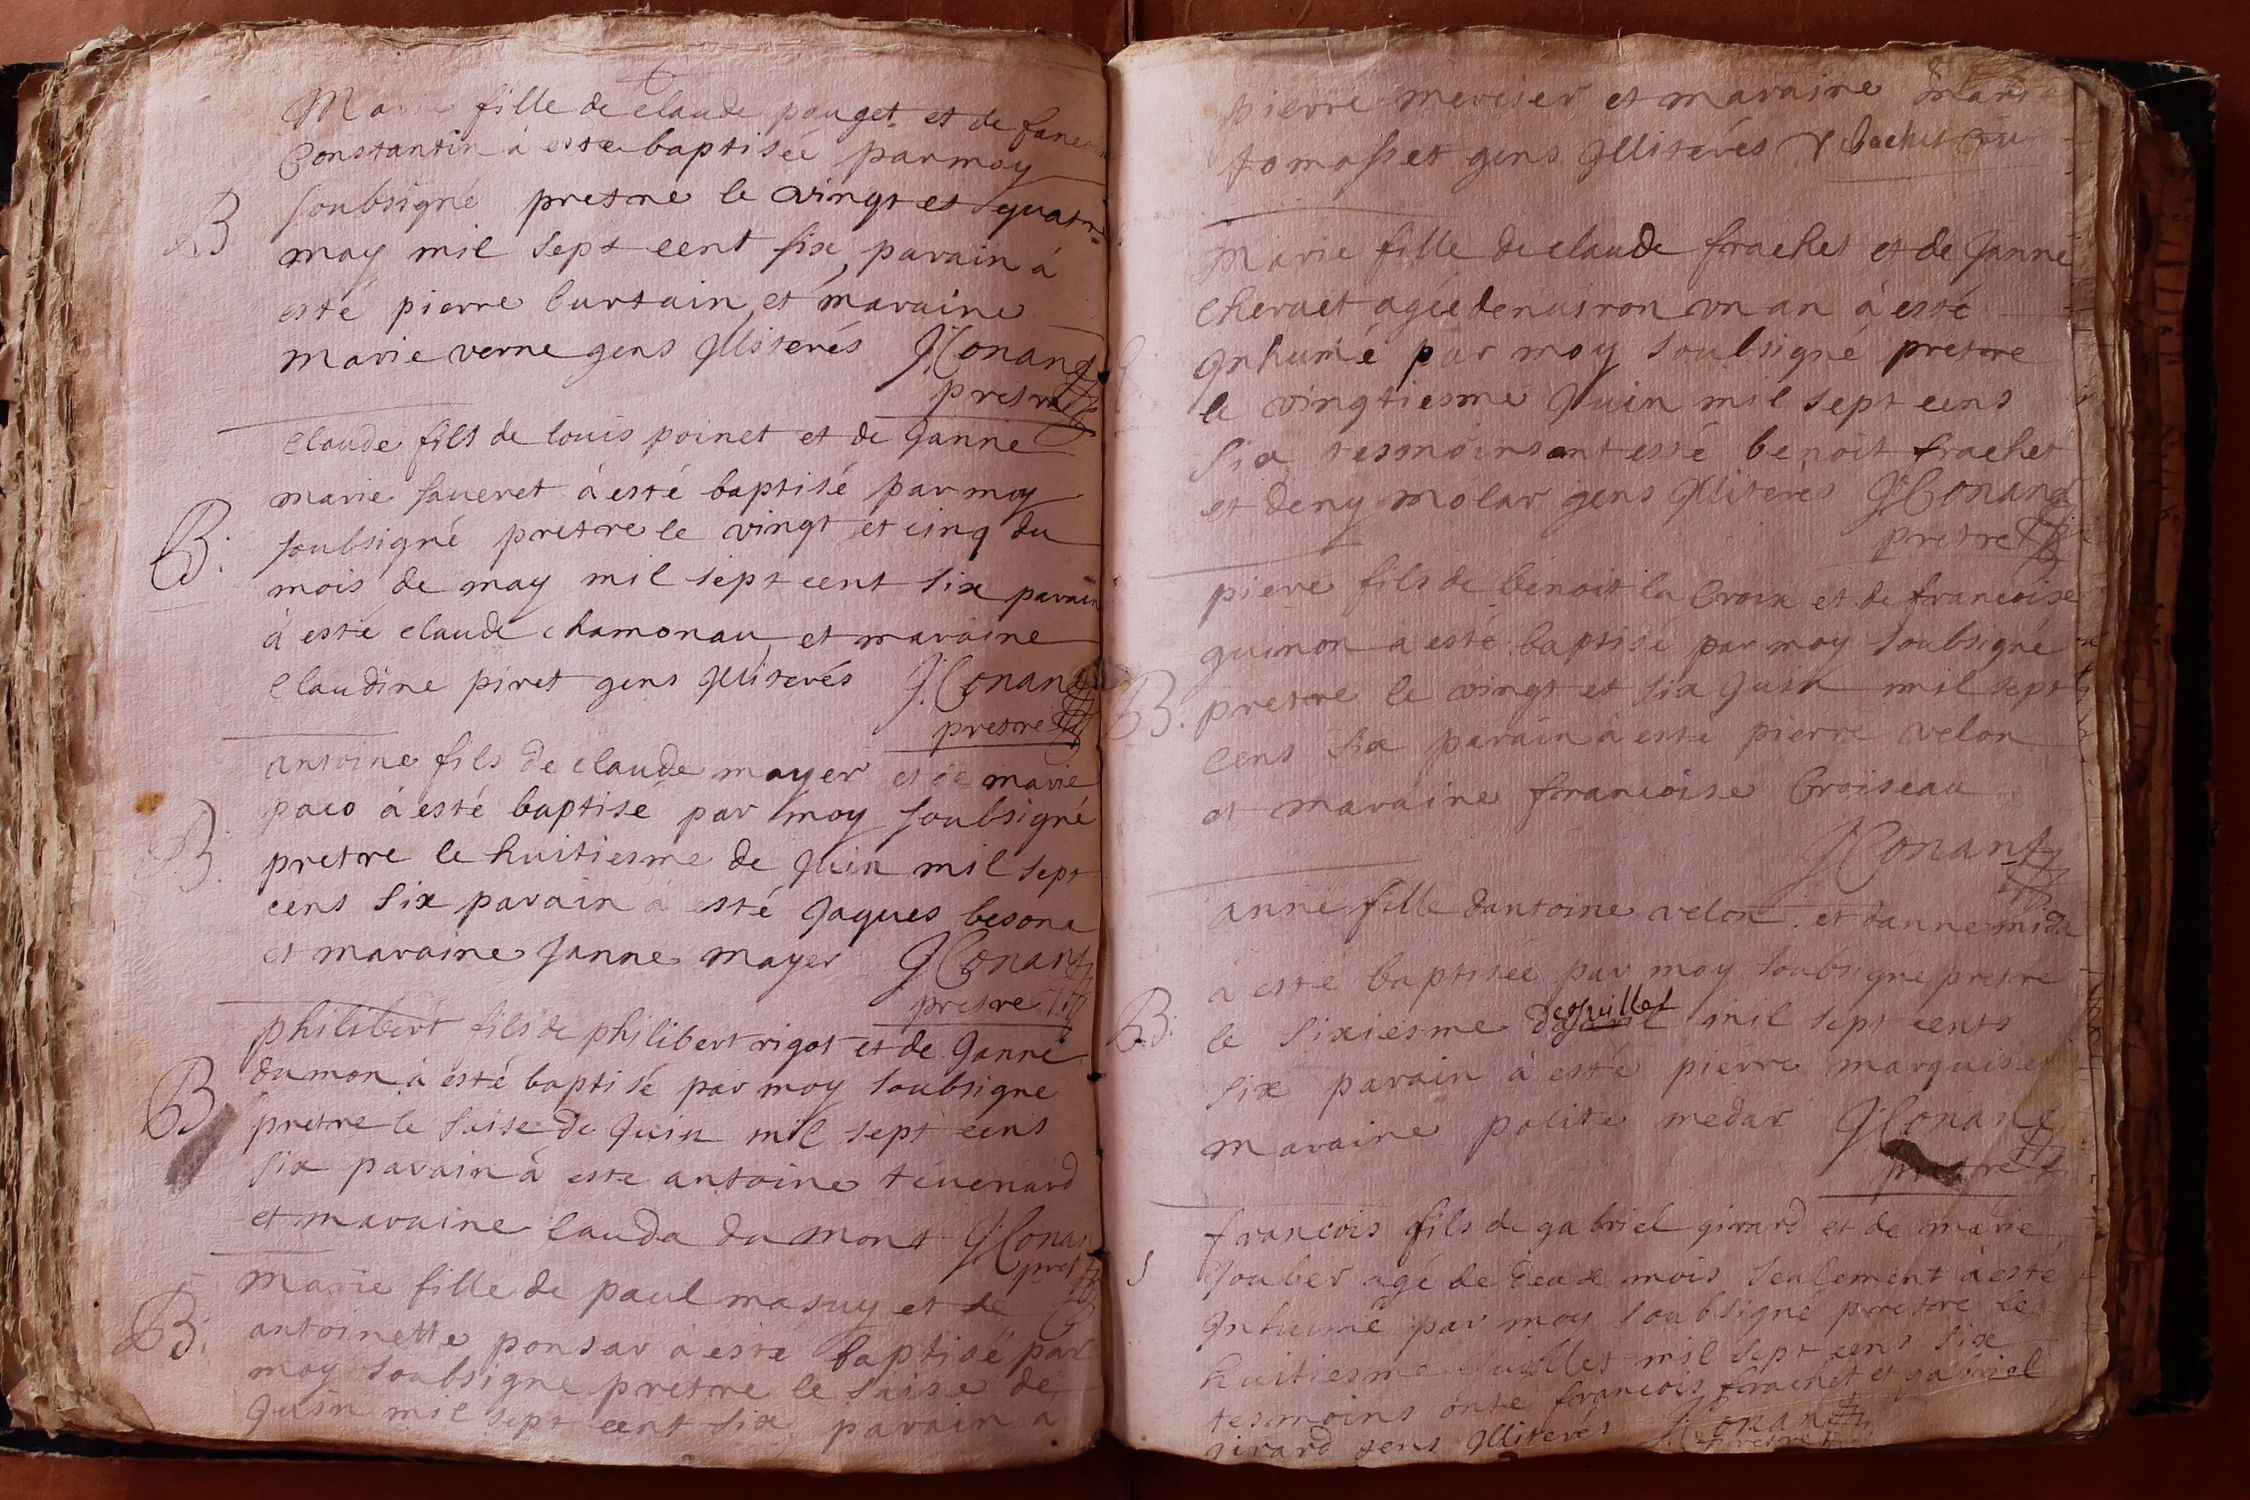 fille de claude pouget et de
Constantin à esté baptisée par moy
B soubsigné prestre le vingt et quatr
may mil sept cent six, parain à
esté pierre curtain et maraine
marie verne gens Jlliterés JConand
prestre
claude fils de louis poinet et de Janne
marie faueret à esté baptisé par moy
B: soubsigné prestre le vingt et cinq du
mois de may mil sept cent six parain
à esté claude chamonau et maraine
claudine piret gens Jlliterés JConand
prestre
antoine fils de claude mayer et de marie
paco à esté baptisé par moy soubsigné
B. prestre le huitiesme de Juin mil sept
cens six parain à esté Jaques besona
et maraine Janne mayer JConand
prestre
philibert fils de philibert rigot et de Janne
dumon à esté baptisé par moy soubsigne
B prestre le saise de Juin mil sept cens
six parain à este antoine téuenard
et maraine lauda du mont JConan
marie fille de paul masuy et de
B: antoinette ponsar à este baptisé par
moy soubsigne prestre le saise de
Juin mil sept cent six parain à
pierre meresier et maraine
tomasset gens Jlliterés
Marie fille de claude frachet et de Janne
cheruet agée denuiron vn an à esté
Jnhumé par moy soubsigné prestre
le vingtiesme Juin mil sept cens
six tesmoins ont esté benoit frachet
et deny molar gens Jlliteres JConand
prestre
piere fils de benoit la Croix et de francoise
guinon à esté baptisé par moy soubsigné
B. prestre le vingt et six Juin mil sept
cens six parain à esté pierre velon
et maraine francoise Croiseau
JConand
anne fille dantoine velon et danne mida
à esté baptisée par moy soubsigné prestre
B: le sixiesme de Juillet mil sept cents
six parain à esté pierre marquiset
maraine polite medar JConand
prestre
francois fils de gabriel girard et de marie
S Jouber agé de deux mois seulement à esté
Jnhumé par moy soubsigné prestre le
huitiesme Juillet mil sept cens six
tesmoins onte francois frachet et gabriel
girard gens Jlliterés JConand
prestre